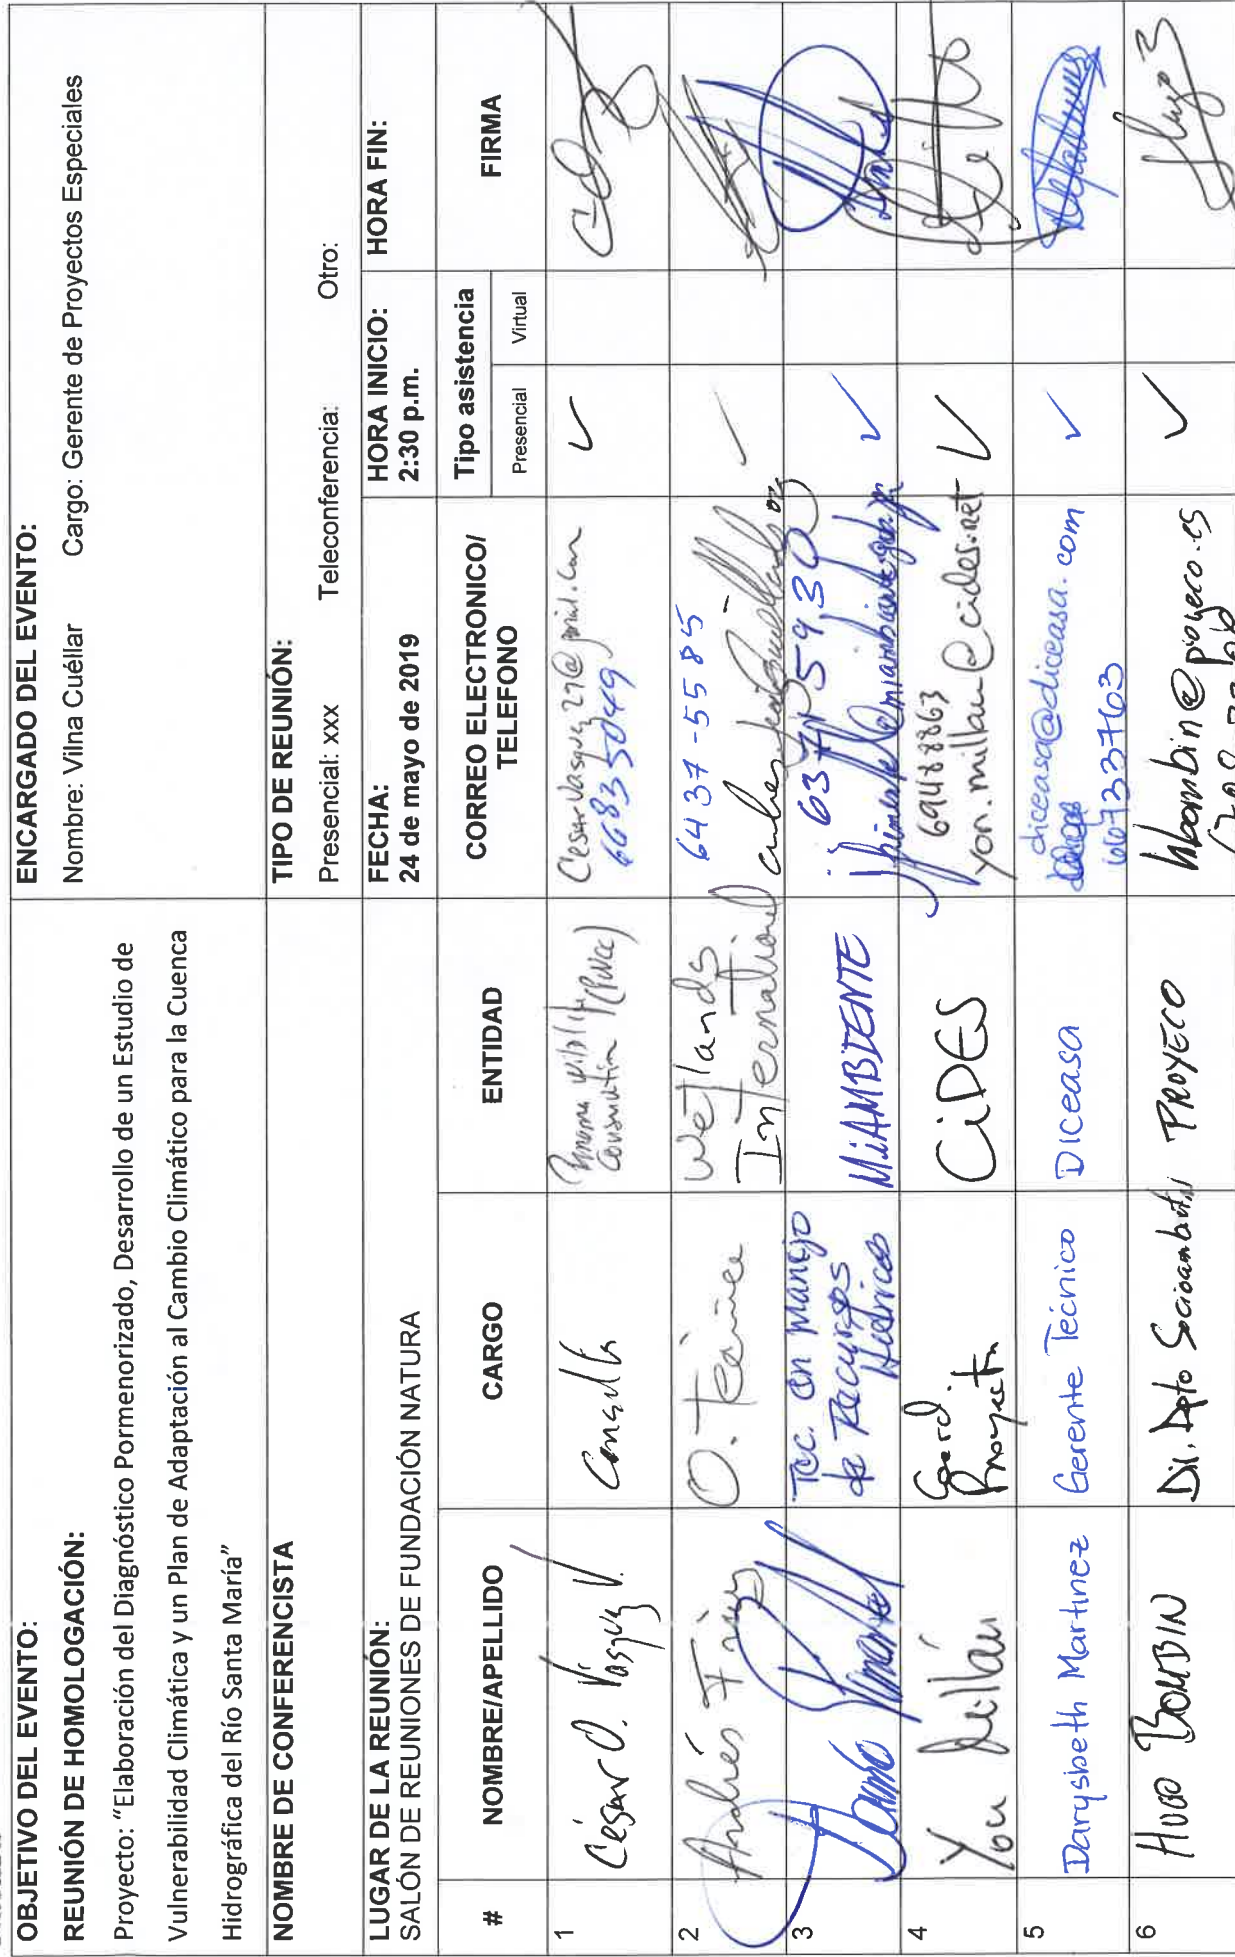 OBJETIVO DEL EVENTO:
REUNIÓN DE HOMOLOGACIÓN:
Proyecto: "Elaboración del Diagnóstico Pormenorizado, Desarrollo de un Estudio de
Vulnerabilidad Climática y un Plan de Adaptación al Cambio Climático para la Cuenca
Hidrográfica del Río Santa María"
ENCARGADO DEL EVENTO:
Nombre: Vilna Cuéllar Cargo: Gerente de Proyectos Especiales
NOMBRE DE CONFERENCISTA
TIPO DE REUNIÓN:
Presencial: xxx Teleconferencia: Otro:
LUGAR DE LA REUNIÓN:
SALÓN DE REUNIONES DE FUNDACIÓN NATURA
FECHA:
24 de mayo de 2019
HORA INICIO:
2:30 p.m.
HORA FIN:
# NOMBRE/APELLIDO CARGO ENTIDAD CORREO ELECTRONICO/
TELEFONO
Tipo asistencia
Presencial Virtual
FIRMA
1 César O. Vásquez V. Panama Wildlife
Conservation (PWCC)
66835049 ✓
2 Andrés Fraiz O. Técnico Wetlands
International
6437-5585 ✓
3 Tec. en Manejo
de Recursos
Hidricos
MiAMBIENTE ✓
4 Yon Millán Coord.
Proyecto
CiDES
69488863
yon.millan@cides.net ✓
5 Darysbeth Martinez Gerente Técnico Diceasa
diceasa@diceasa.com
66733763 ✓
6 HUGO BOMBIN Dir. Dpto Socioambiental PROYECO
hbombin@proyeco.es ✓